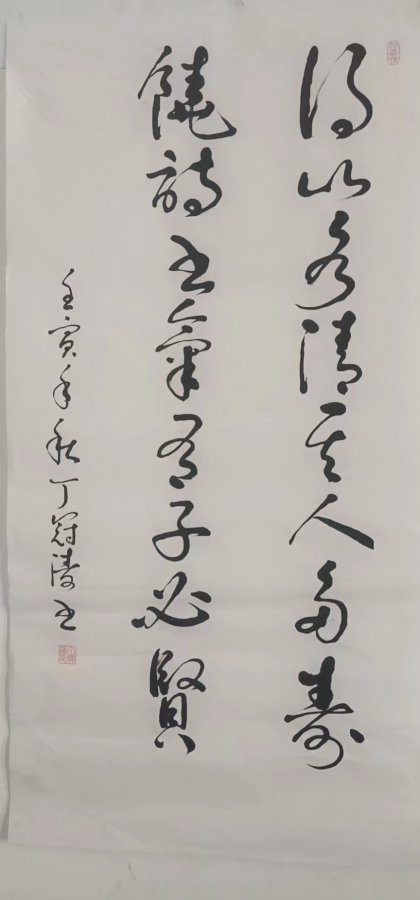 得山水清其人多壽
饒詩書氣有子必賢
壬寅年秋丁冠書